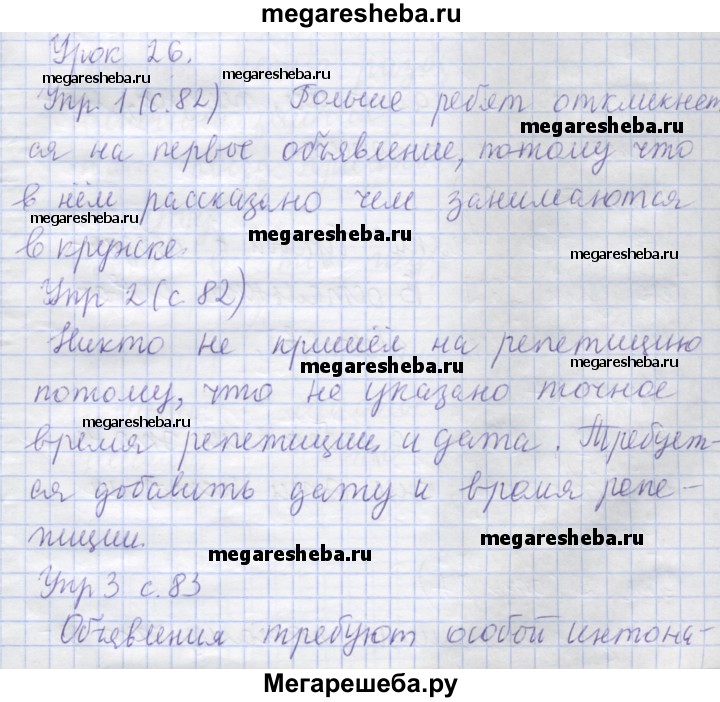 megaresheba.ru
Урок 26.
megaresheba.ru megaresheba.ru
Упр. 1 (с. 82) Больше ребят откликнет
megaresheba.ru
ся на первое объявление, потому что
в нём рассказано чем занимаются
megaresheba.ru megaresheba.ru
в кружке.
megaresheba.ru
Упр 2 (с 82)
Никто не пришёл на репетицию
megaresheba.ru megaresheba.ru
потому, что не указано точное
megaresheba.ru
время репетиции и дата. Требует-
ся добавить дату и время репе-
тиции.
megaresheba.ru megaresheba.ru
Упр 3 с. 83
Объявления требуют особой интона-
Мегарешеба.ру